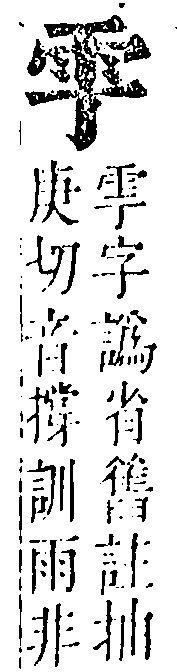 雩字譌省舊註抽
庚切音撐訓雨非